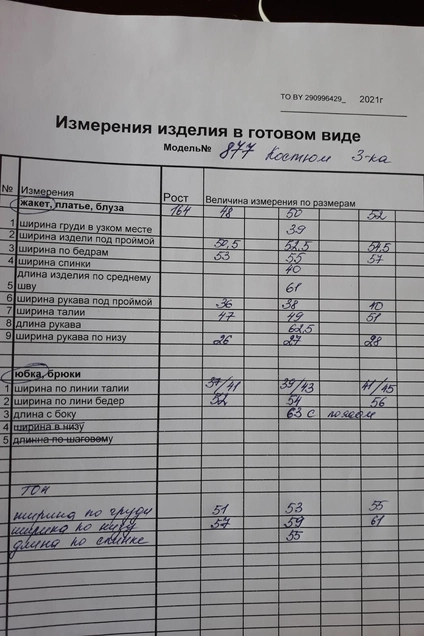 ТО BY 290996429_ 2021г
Измерения изделия в готовом виде
Модель№ 877 Костюм 3-ка
№ Измерения Рост Величина измерения по размерам
жакет, платье, блуза 164 48 50 52
1 ширина груди в узком месте 39
2 ширина издели под проймой 50,5 52,5 54,5
3 ширина по бедрам 53 55 57
4 ширина спинки 40
длина изделия по среднему
5 шву 61
6 ширина рукава под проймой 36 38 40
7 ширина талии 47 49 51
8 длина рукава 62,5
9 ширина рукава по низу 26 27 28
юбка, брюки
1 ширина по линии талии 37/41 39/43 41/45
2 ширина по лини бедер 52 54 56
3 длина с боку 63 с поясом
4 ширина в низу
5 длинна по шаговому
ТОП
ширина по груди 51 53 55
ширина по низу 57 59 61
длина по спинке 55